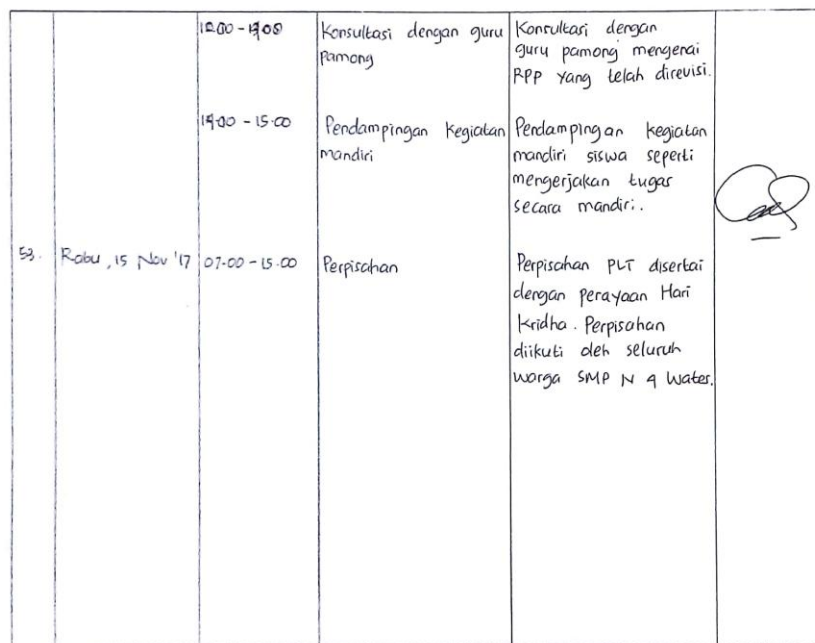 12.00 - 13.00 Konsultasi dengan guru Konsultasi dengan
pamong guru pamong mengenai
RPP yang telah direvisi.
14.00 - 15.00 Pendampingan kegiatan Pendampingan kegiatan
mandiri mandiri siswa seperti
mengerjakan tugas
secara mandiri.
53. Rabu, 15 Nov '17 07.00 - 15.00 Perpisahan Perpisahan PLT disertai
dengan perayaan Hari
Kridha. Perpisahan
diikuti oleh seluruh
warga SMP N 4 Wates.